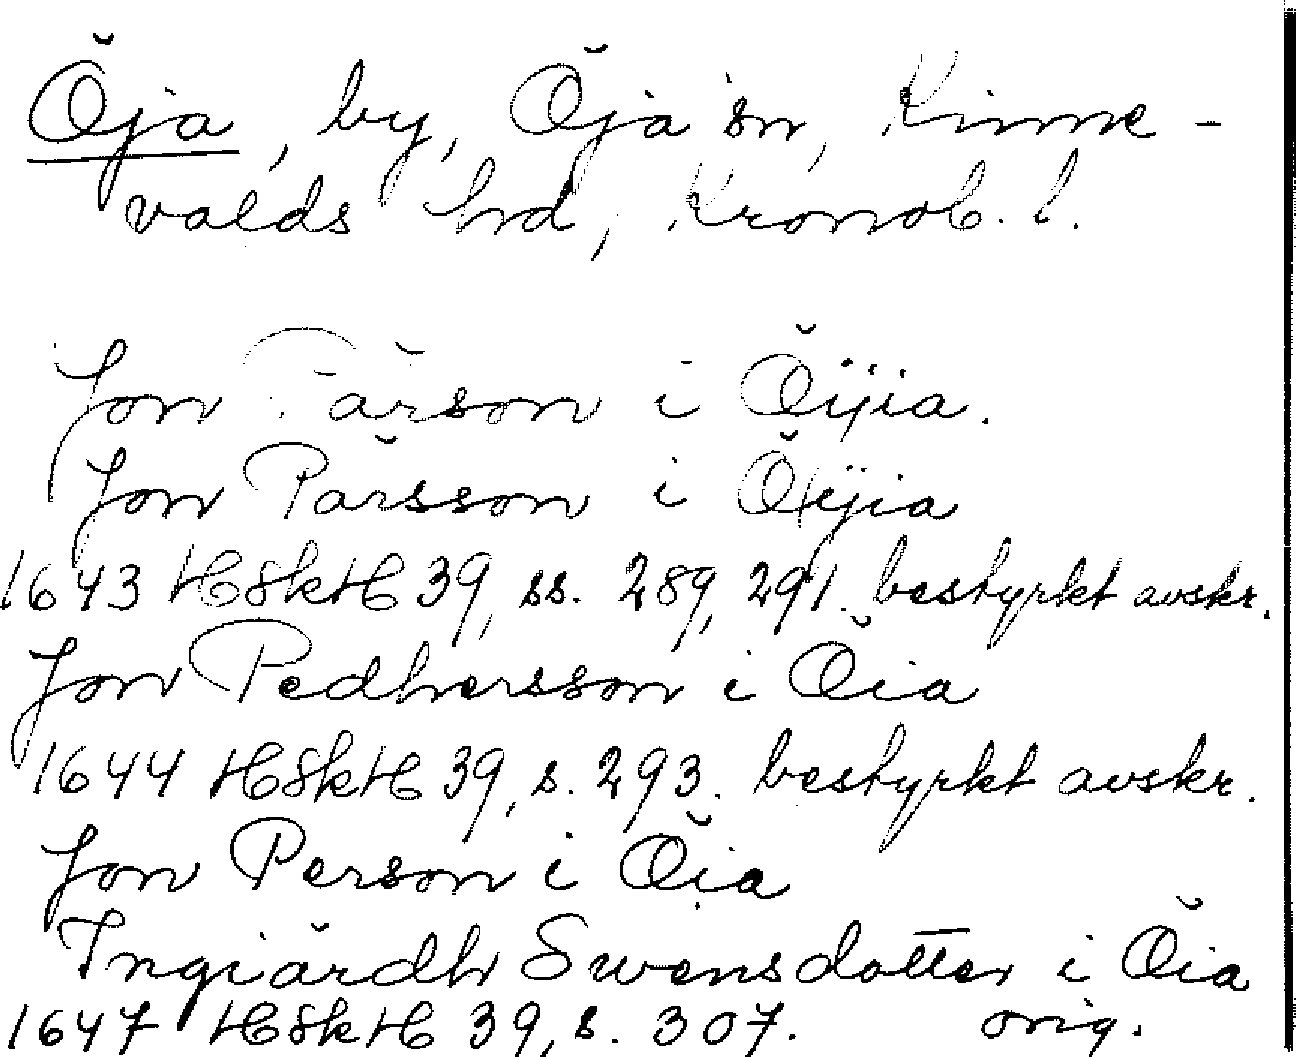 Öja, by, Öja sn, Kinne-
valds hd, Kronob. l.
Jon Pärson i Öijia.
Jon Pärsson i Öijia
1643 HSkH 39, ss. 289, 291. bestyrkt avskr.
Jon Pedhersson i Öia
1644 HSkH 39, s. 293. bestyrkt avskr.
Jon Person i Öia
Ingiärdh Swensdotter i Öia
1647 HSkH 39, s. 307. orig.